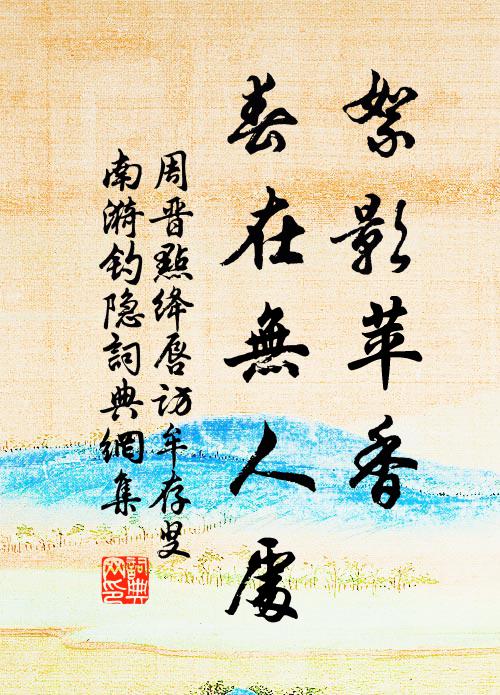 絮影苹香
春在無人處
周晋點绛唇访牟存叟
南漪钓隐詞典網集
詞典
网印